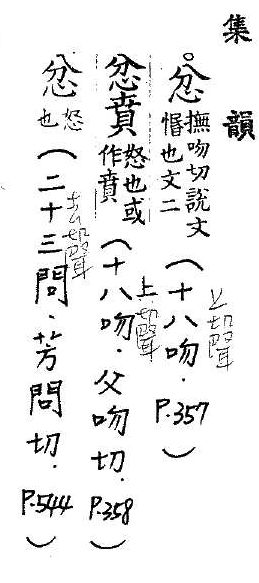 集韻
忿撫吻切說文悁也文二（十八吻．P.357）
上聲
忿賁怒也或作賁（十八吻．父吻切．P.358）
上聲
忿怒也（二十三問．芳問切．P.544）
去聲